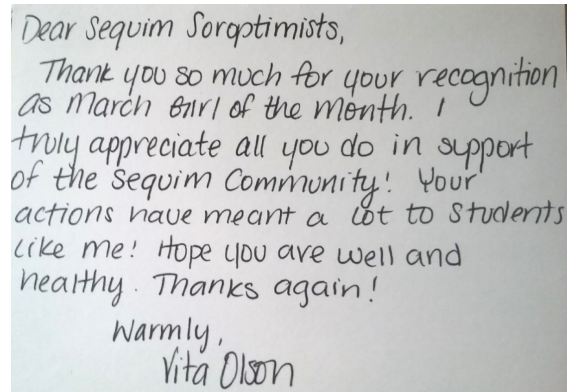 Dear Sequim Soroptimists,
Thank you so much for your recognition
as March Girl of the Month. I
truly appreciate all you do in support
of the Sequim Community! Your
actions have meant a lot to students
like me! Hope you are well and
healthy. Thanks again!
Warmly,
Vita Olson